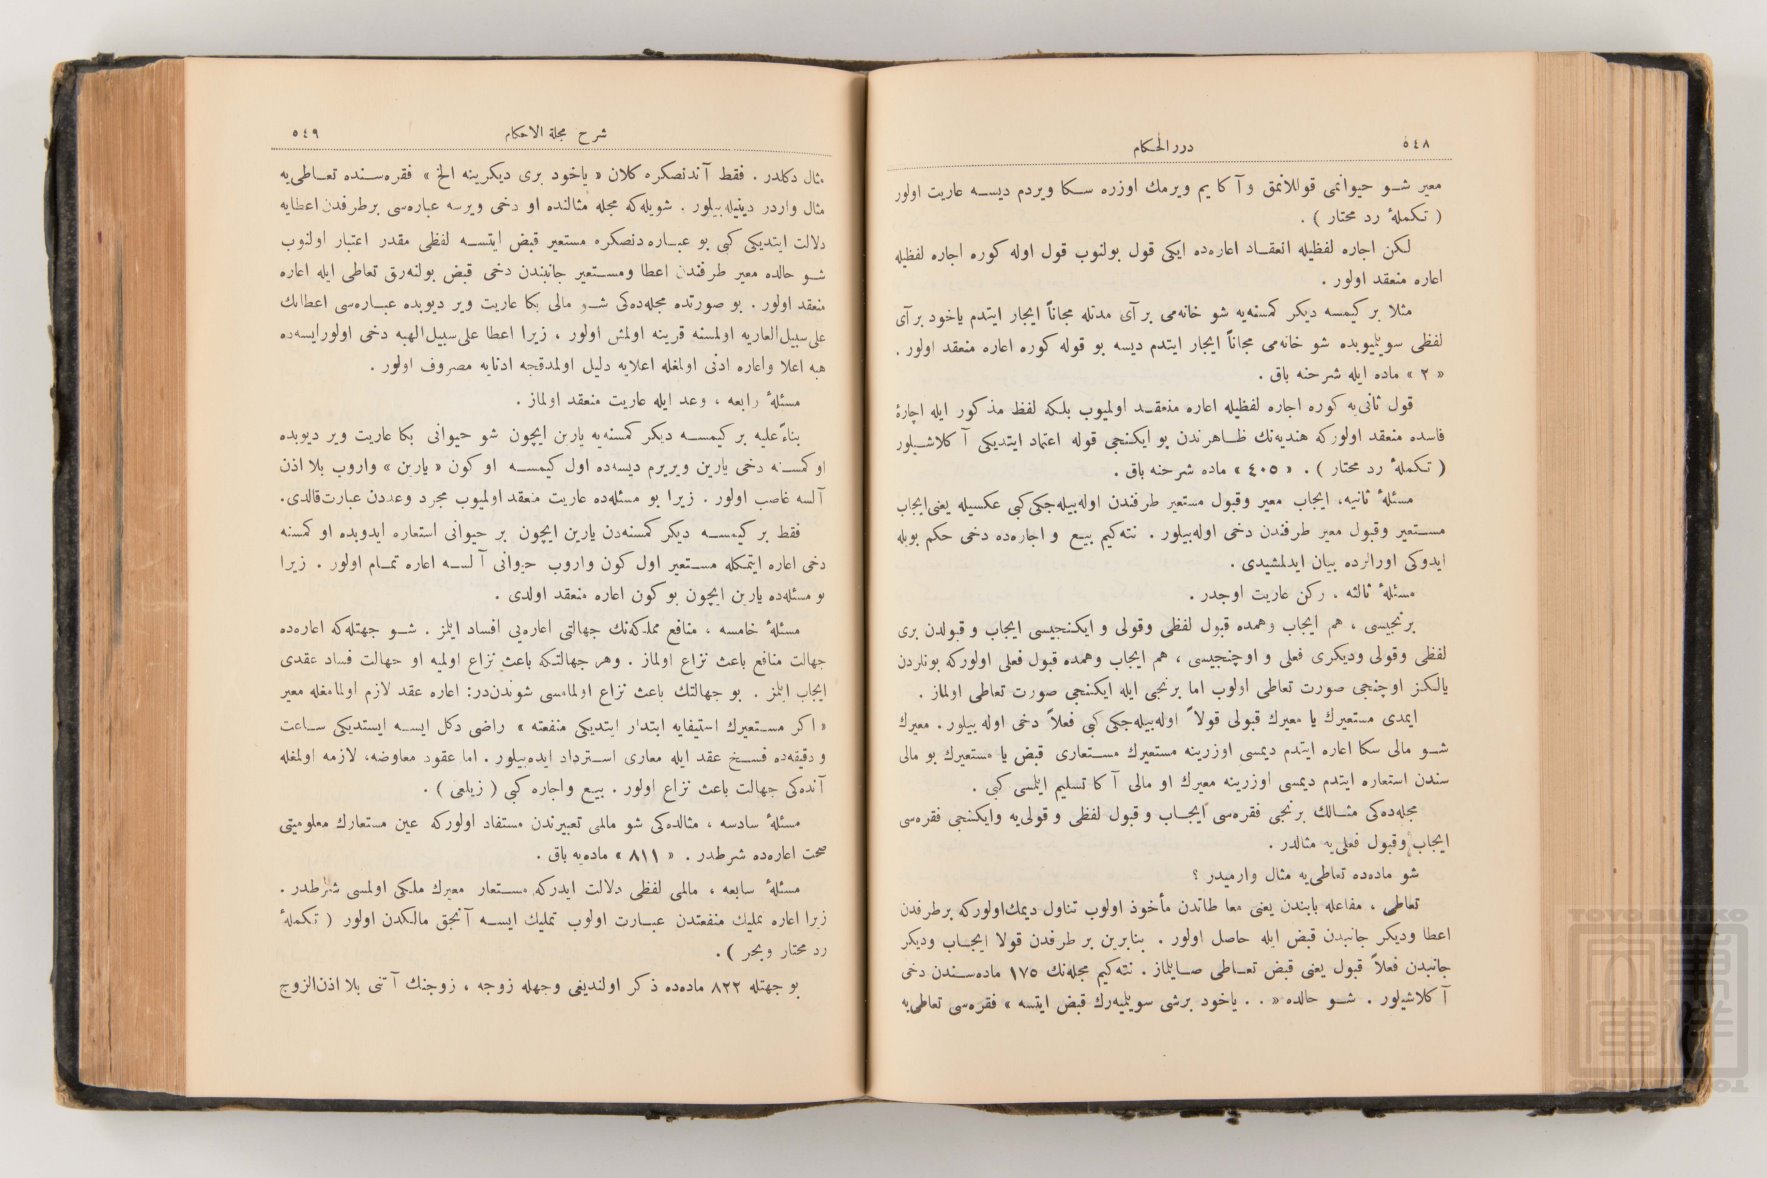 ٥٤٨
دررالحكام
معير شو حيوانمى قوللانمق و آكا يم ويرمك اوزره سكا ويردم ديسه عاريت اولور
( تكملهٔ رد محتار ) .
لكن اجاره لفظيله انعقاد اعاره‌ده ايكى قول بولنوب قول اوله كوره اجاره لفظيله
اعاره منعقد اولور .
مثلا بر كيمسه ديكر كمسنه‌يه شو خانه‌مى بر آى مدتله مجاناً ايجار ايتدم ياخود بر آى
لفظى سويليوبده شو خانه‌مى مجاناً ايجار ايتدم ديسه بو قوله كوره اعاره منعقد اولور .
« ٢ » ماده ايله شرحنه باق .
قول ثانى‌يه كوره اجاره لفظيله اعاره منعقد اولميوب بلكه لفظ مذكور ايله اجارهٔ
فاسده منعقد اولوركه هنديه‌نك ظاهرندن بو ايكنجى قوله اعتماد ايتديكى آكلاشيلور
( تكملهٔ رد محتار ) . « ٤٠٥ » ماده شرحنه باق .
مسئلهٔ ثانيه، ايجاب معير وقبول مستعير طرفندن اوله‌بيله‌جكى كبى عكسيله يعنى ايجاب
مستعير وقبول معير طرفندن دخى اوله‌بيلور . نته‌كيم بيع و اجاره‌ده دخى حكم بويله
ايدوكى اورالرده بيان ايدلمشيدى .
مسئلهٔ ثالثه ، ركن عاريت اوجدر .
برنجيسى ، هم ايجاب وهمده قبول لفظى وقولى و ايكنجيسى ايجاب و قبولدن برى
لفظى وقولى وديكرى فعلى و اوچنجيسى ، هم ايجاب وهمده قبول فعلى اولوركه بونلردن
يالكز اوچنجى صورت تعاطى اولوب اما برنجى ايله ايكنجى صورت تعاطى اولماز .
ايمدى مستعيرك يا معيرك قبولى قولاً اوله‌بيله‌جكى كبى فعلاً دخى اوله بيلور . معيرك
شو مالى سكا اعاره ايتدم ديمسى اوزرينه مستعيرك مستعارى قبض يا مستعيرك بو مالى
سندن استعاره ايتدم ديمسى اوزرينه معيرك او مالى آكا تسليم ايلمسى كبى .
مجله‌ده‌كى مثالك برنجى فقره‌سى ايجاب و قبول لفظى و قولى‌يه وايكنجى فقره‌سى
ايجاب وقبول فعلى‌يه مثالدر .
شو ماده‌ده تعاطى‌يه مثال وارميدر ؟
تعاطى ، مفاعله بابندن يعنى معاطاتدن مأخوذ اولوب تناول ديمك‌اولوركه برطرفدن
اعطا وديكر جانبدن قبض ايله حاصل اولور . بنابرين بر طرفدن قولا ايجاب وديكر
جانبدن فعلاً قبول يعنى قبض تعاطى صايلماز . نته‌كيم مجله‌نك ١٧٥ ماده‌سندن دخى
آكلاشيلور . شو حالده « . . ياخود برشى سويليه‌رك قبض ايتسه » فقره‌سى تعاطى‌يه
شرح مجلة الاحكام
٥٤٩
مثال دكلدر . فقط آندنصكره كلان « ياخود برى ديكرينه الخ » فقره‌سنده تعاطى‌يه
مثال واردر دينيله‌بيلور . شويله‌كه مجله مثالنده او دخى ويرسه عباره‌سى برطرفدن‌اعطايه
دلالت ايتديكى كبى بو عباره‌دنصكره مستعير قبض ايتسه لفظى مقدر اعتبار اولنوب
شو حالده معير طرفندن اعطا ومستعير جانبندن دخى قبض بولنه‌رق تعاطى ايله اعاره
منعقد اولور . بو صورتده مجله‌ده‌كى شو مالى بكا عاريت وير ديوبده عباره‌سى اعطانك
على‌سبيل‌العاريه اولمسنه قرينه اولمش اولور ، زيرا اعطا على‌سبيل‌الهبه دخى اولورايسه‌ده
هبه اعلا واعاره ادنى اولمغله اعلايه دليل اولمدقجه ادنايه مصروف اولور .
مسئلهٔ رابعه ، وعد ايله عاريت منعقد اولماز .
بناءً عليه بر كيمسه ديكر كمسنه‌يه يارين ايچون شو حيوانى بكا عاريت وير ديوبده
او كمسنه دخى يارين ويريرم ديسه‌ده اول كيمسه او كون « يارين » واروب بلا اذن
آلسه غاصب اولور . زيرا بو مسئله‌ده عاريت منعقد اولميوب مجرد وعددن عبارت‌قالدى.
فقط بر كيمسه ديكر كمسنه‌دن يارين ايچون بر حيوانى استعاره ايدوبده او كمسنه
دخى اعاره ايتمكله مستعير اول كون واروب حيوانى آلسه اعاره تمام اولور . زيرا
بو مسئله‌ده يارين ايچون بو كون اعاره منعقد اولدى .
مسئلهٔ خامسه ، منافع مملكه‌نك جهالتى اعاره‌يى افساد ايلمز . شو جهتله‌كه اعاره‌ده
جهالت منافع باعث نزاع اولماز . وهر جهالتكه باعث نزاع اولميه او جهالت فساد عقدى
ايجاب ايلمز . بو جهالتك باعث نزاع اولمامسى شوندن‌در: اعاره عقد لازم اولمامغله معير
« اكر مستعيرك استيفايه ابتدار ايتديكى منفعته » راضى دكل ايسه ايستديكى ساعت
و دقيقه‌ده فسخ عقد ايله معارى استرداد ايده‌بيلور . اما عقود معاوضه، لازمه اولمغله
آنده‌كى جهالت باعث نزاع اولور . بيع واجاره كبى ( زيلعى ) .
مسئلهٔ سادسه ، مثالده‌كى شو مالمى تعبيرندن مستفاد اولوركه عين مستعارك معلوميتى
صحت اعاره‌ده شرطدر . « ٨١١ » ماده‌يه باق .
مسئلهٔ سابعه ، مالمى لفظى دلالت ايدركه مستعار معيرك ملكى اولمسى شرطدر .
زيرا اعاره تمليك منفعتدن عبارت اولوب تمليك ايسه آنجق مالكدن اولور ( تكملهٔ
رد محتار وبحر ) .
بو جهتله ٨٢٢ ماده‌ده ذكر اولنديغى وجهله زوجه ، زوجنك آتنى بلا اذن‌الزوج
TOYO BUNKO